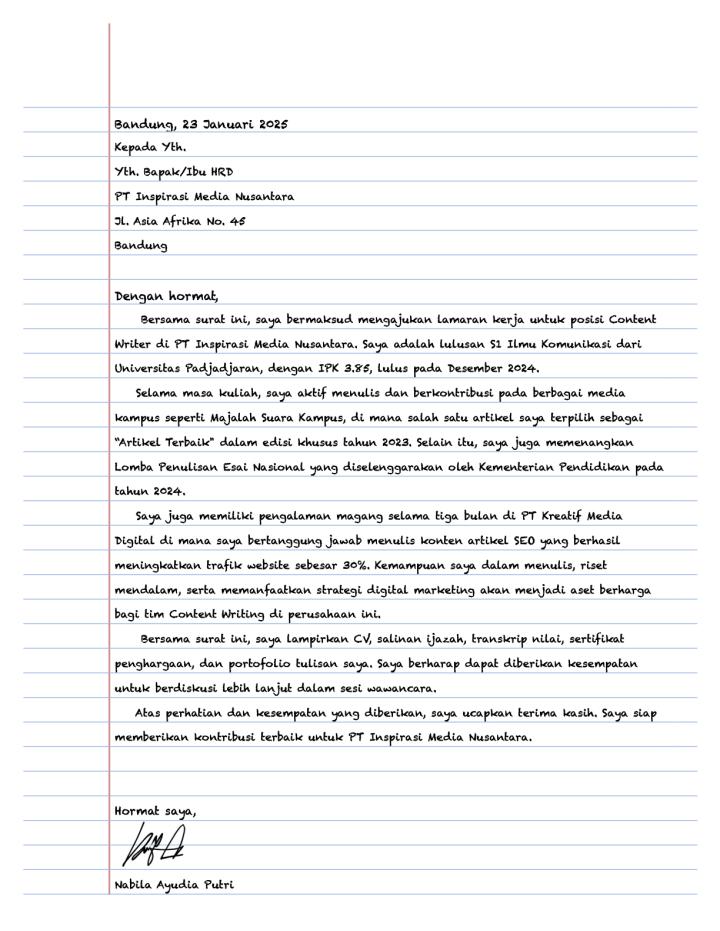 Bandung, 23 Januari 2025
Kepada Yth.
Yth. Bapak/Ibu HRD
PT Inspirasi Media Nusantara
Jl. Asia Afrika No. 45
Bandung
Dengan hormat,
Bersama surat ini, saya bermaksud mengajukan lamaran kerja untuk posisi Content
Writer di PT Inspirasi Media Nusantara. Saya adalah lulusan S1 Ilmu Komunikasi dari
Universitas Padjadjaran, dengan IPK 3.85, lulus pada Desember 2024.
Selama masa kuliah, saya aktif menulis dan berkontribusi pada berbagai media
kampus seperti Majalah Suara Kampus, di mana salah satu artikel saya terpilih sebagai
"Artikel Terbaik" dalam edisi khusus tahun 2023. Selain itu, saya juga memenangkan
Lomba Penulisan Esai Nasional yang diselenggarakan oleh Kementerian Pendidikan pada
tahun 2024.
Saya juga memiliki pengalaman magang selama tiga bulan di PT Kreatif Media
Digital di mana saya bertanggung jawab menulis konten artikel SEO yang berhasil
meningkatkan trafik website sebesar 30%. Kemampuan saya dalam menulis, riset
mendalam, serta memanfaatkan strategi digital marketing akan menjadi aset berharga
bagi tim Content Writing di perusahaan ini.
Bersama surat ini, saya lampirkan CV, salinan ijazah, transkrip nilai, sertifikat
penghargaan, dan portofolio tulisan saya. Saya berharap dapat diberikan kesempatan
untuk berdiskusi lebih lanjut dalam sesi wawancara.
Atas perhatian dan kesempatan yang diberikan, saya ucapkan terima kasih. Saya siap
memberikan kontribusi terbaik untuk PT Inspirasi Media Nusantara.
Hormat saya,
Nabila Ayudia Putri